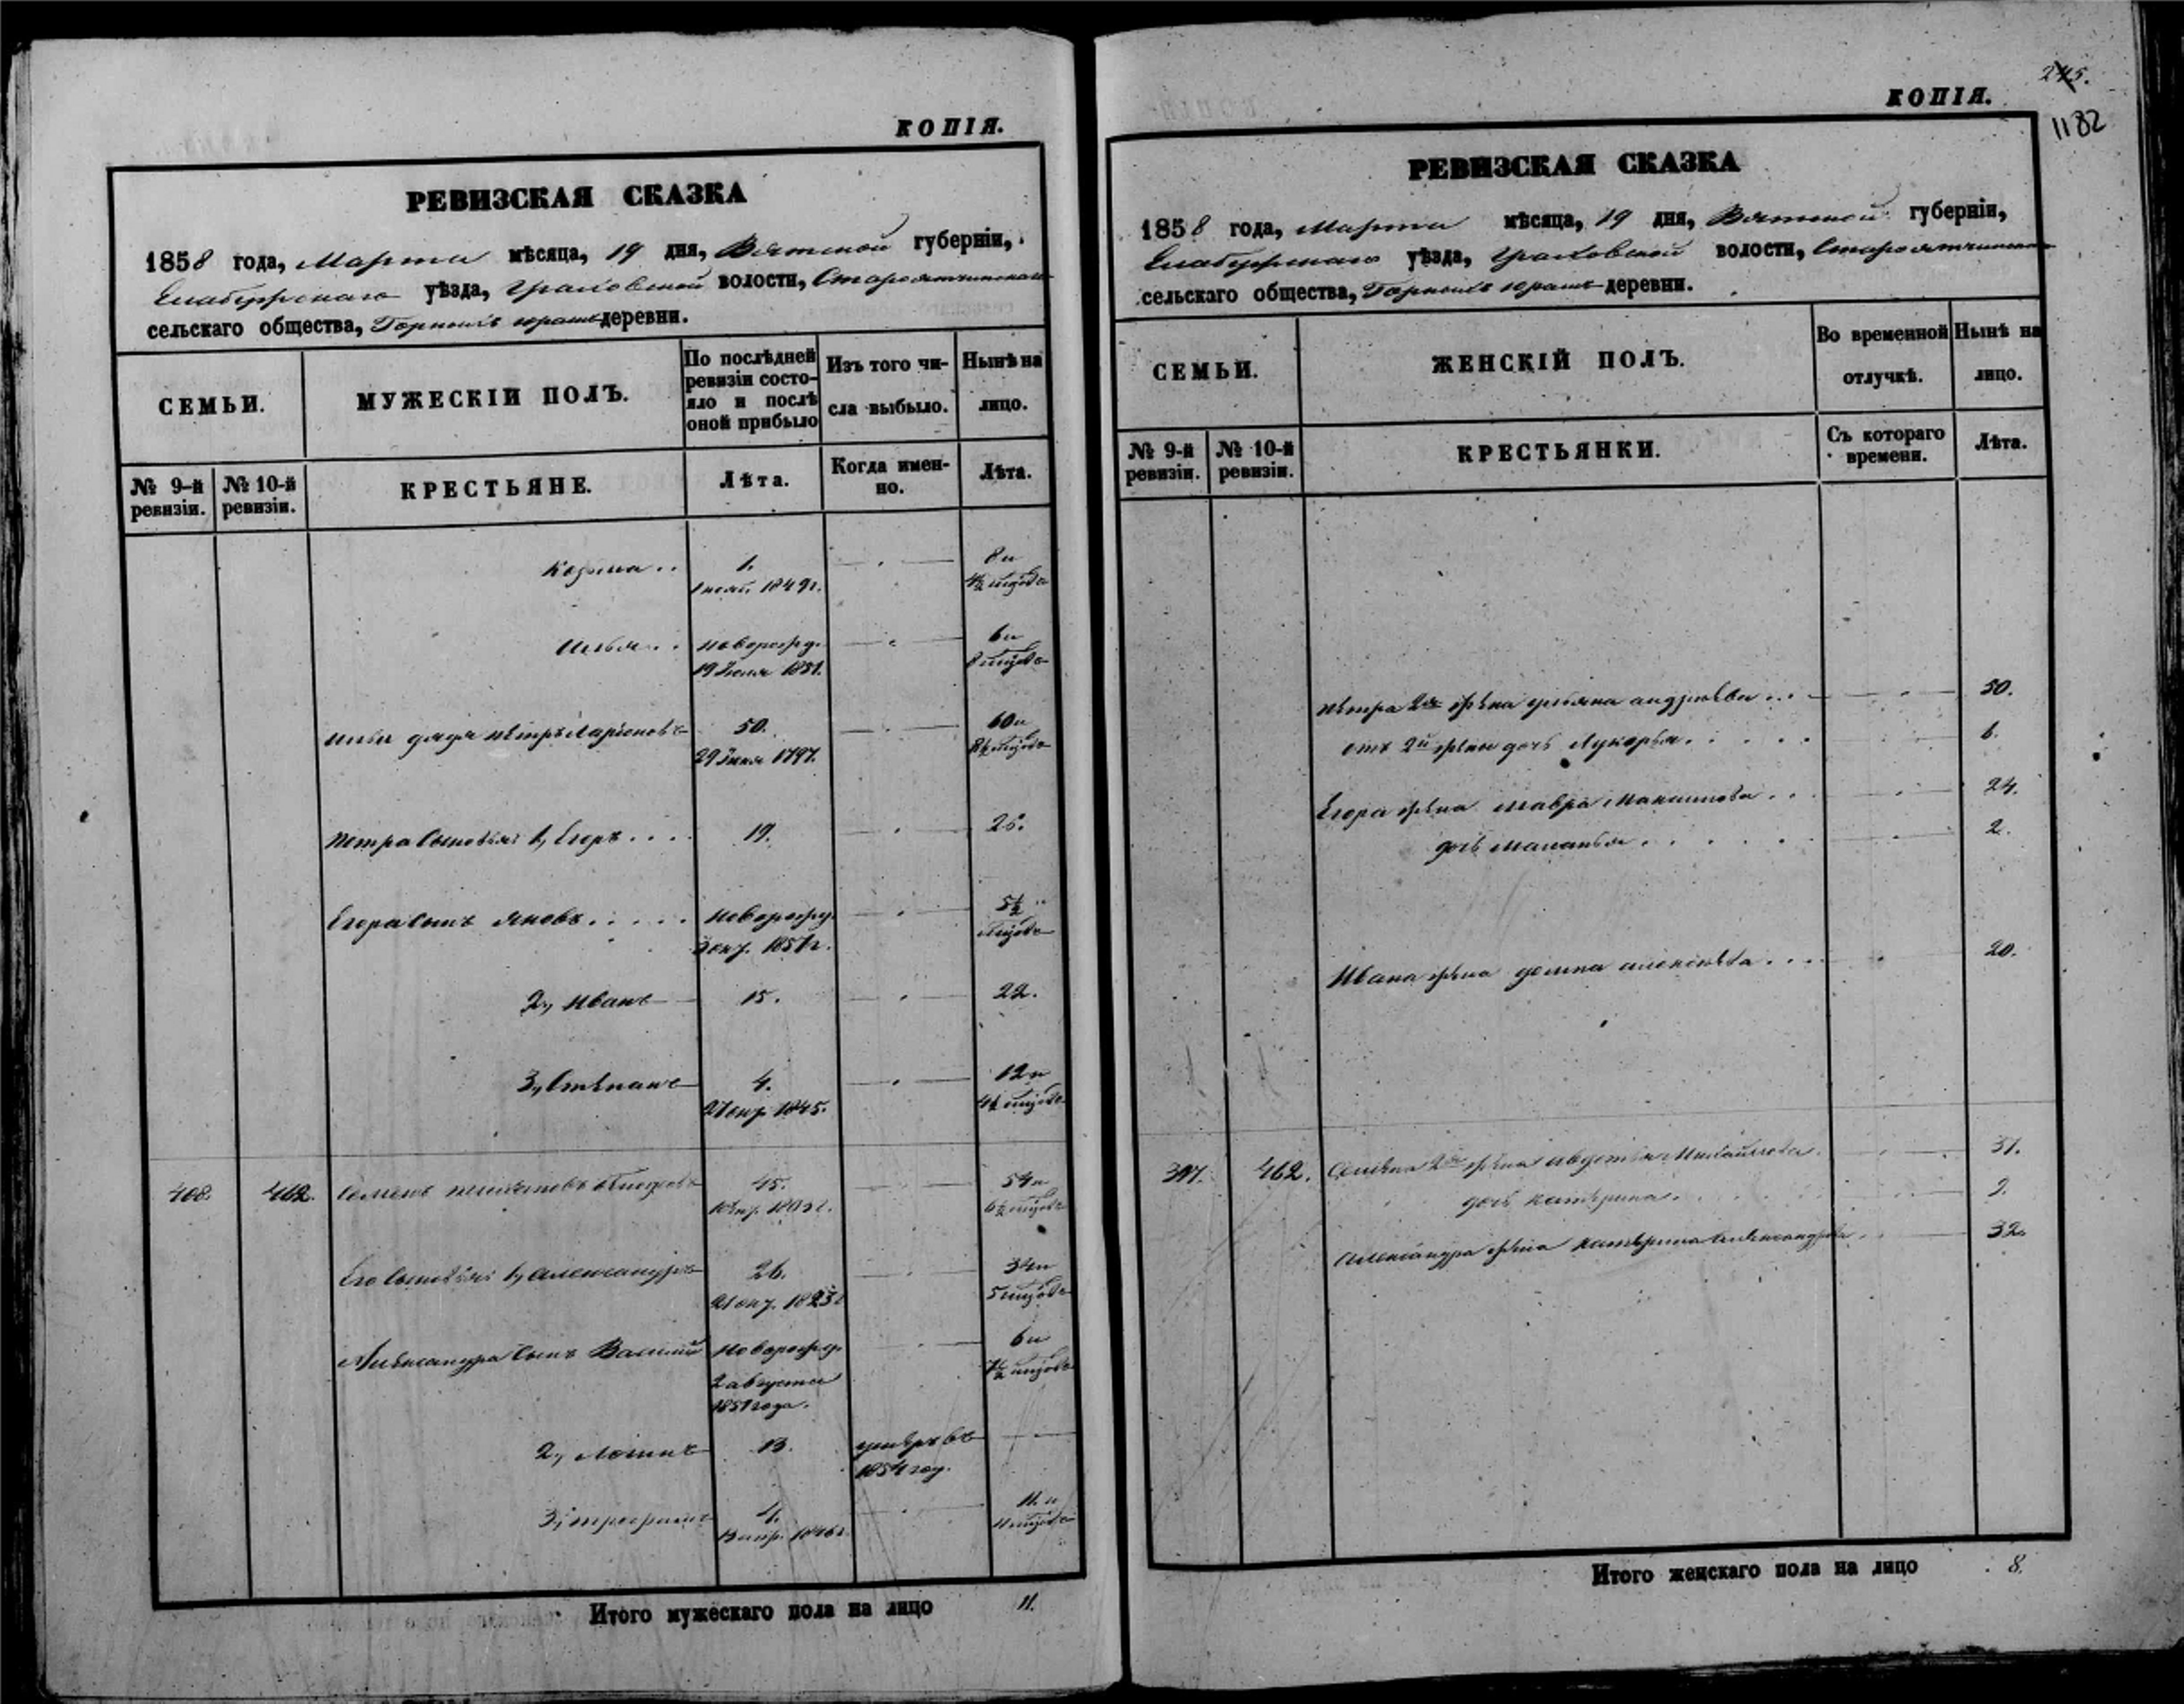 КОПІЯ.
РЕВИЗСКАЯ СКАЗКА
1858 года, Марта мѣсяца, 19 дня, Вятской губерніи,
Елабужскаго уѣзда, Граховской волости, Староятчинскаго
сельскаго общества, деревни.
СЕМЬИ.
МУЖЕСКІЙ ПОЛЪ.
По послѣдней ревизіи состо-
яло и послѣ
оной прибыло
Изъ того чи-
сла выбыло.
Нынѣ на
лицо.
№ 9-й ревизіи.
№ 10-й ревизіи.
КРЕСТЬЯНЕ.
Лѣта.
Когда имен-
но.
Лѣта.
Козьма .. 1. 8 и
1849г. 4½ мѣсяц
Илья .. новорожд. 6 и
19 Іюля 1851. 8 мѣсяц
Ильи дядя Петръ Ларіоновъ 50. 60 и
29 Іюня 1797. 8½ мѣсяц
Петра сыновья 1, Егоръ .... 19. 26.
Егора сынъ Яковъ ..... новорожд. 5½
окт. 1857г. мѣсяц
2, Иванъ 15. 22.
3, Степанъ 4. 12 и
27 окт. 1845. 4½ мѣсяц
408. 462. Семенъ 45. 54 и
6½ мѣсяц
Его сыновья 1, Александръ 26. 34 и
21 окт. 1823г 5 мѣсяц
Александра сынъ Василий новорожд. 6 и
2 августа 7½ мѣсяц
1851 года.
2, Логинъ 13. умеръ въ
1854 год.
3, Трофимъ 4. 11. и
апр. 1846г. 11 мѣсяц
Итого мужескаго пола на лицо 11.
245.
КОПІЯ.
1182
РЕВИЗСКАЯ СКАЗКА
1858 года, Марта мѣсяца, 19 дня, Вятской губерніи,
Елабужскаго уѣзда, Граховской волости, Староятчинскаго
сельскаго общества, деревни.
СЕМЬИ.
ЖЕНСКІЙ ПОЛЪ.
Во временной
отлучкѣ.
Нынѣ на
лицо.
№ 9-й ревизіи.
№ 10-й ревизіи.
КРЕСТЬЯНКИ.
Съ котораго
времени.
Лѣта.
Петра 2я жена Ульяна Андреева ... 50.
отъ 2й жены дочь Лукерья. .... 6.
Егора жена Мавра Максимова ... 24.
дочь Маланья ..... 2.
Ивана жена Домна Алексѣева .... 20.
397. 462. Семена 2я жена Авдотья Михайлова. 31.
дочь Катерина ..... 9.
Александра жена Катерина Александрова 32.
Итого женскаго пола на лицо 8.